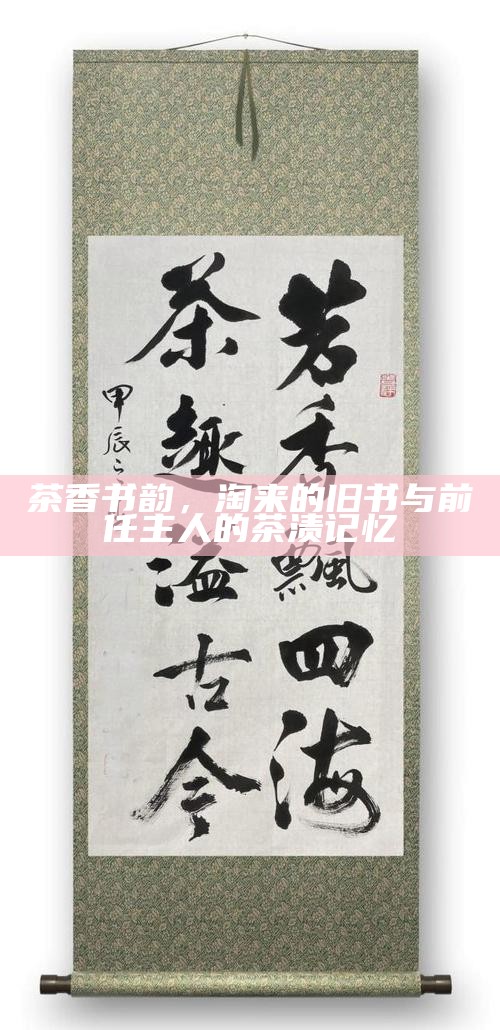 茗香飘四海
茶趣溢古今
甲辰之
茶香书韵，淘来的旧书与前
任主人的茶渍记忆